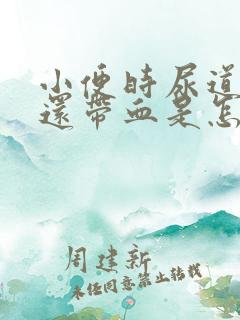 小便時尿道
還帶血是怎
周建新
未经同意禁止转载